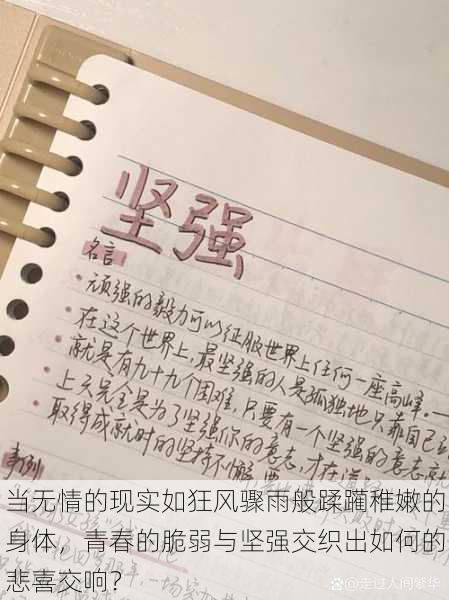 坚强
名言
·顽强的毅力可以征服世界上任何一座高峰。—
·在这个世界上,最坚强的人是孤独地只靠自己
·就是有九十九个困难,只要有一个坚强的意志
·上天完全是为了坚强你的意志,才在道
取得成就时的坚持不懈,要
事例
当无情的现实如狂风骤雨般蹂躏稚嫩的
身体，青春的脆弱与坚强交织出如何的
悲喜交响？
@走过人间繁华